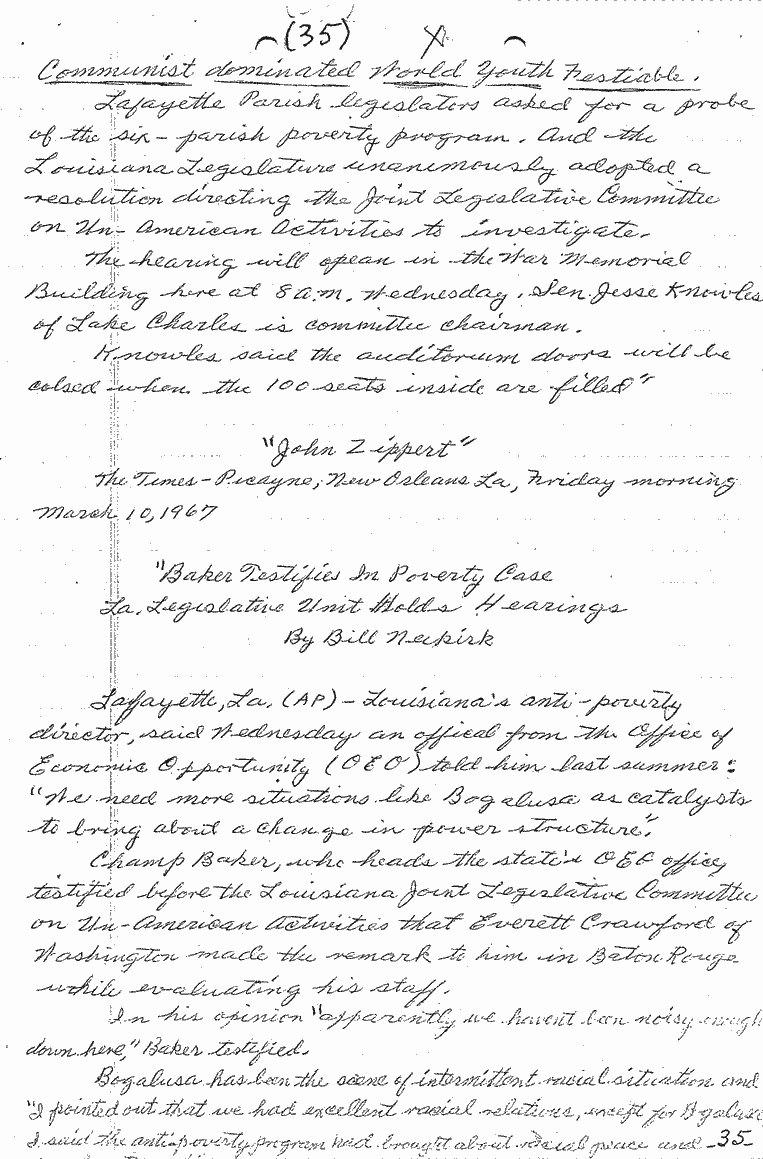 (35) X
Communist dominated World Youth Festiable.
Lafayette Parish legislators asked for a probe
of the six-parish poverty program. And the
Louisiana Legislature unanimously adopted a
resolution directing the Joint Legislative Committee
on Un-American Activities to investigate.
The hearing will opean in the War Memorial
Building here at 8 a.m. Wednesday. Sen. Jesse Knowles
of Lake Charles is committee chairman.
Knowles said the auditorium doors will be
colsed when the 100 seats inside are filled"
"John Zippert"
The Times-Picayne, New Orleans La, Friday morning
March 10, 1967
"Baker Testifies In Poverty Case
La. Legislative Unit Holds Hearings
By Bill Neikirk
Lafayette, La. (AP) - Louisiana's anti-poverty
director, said Wednesday an offical from the Office of
Economic Opportunity (OEO) told him last summer:
"We need more situations like Bogalusa as catalysts
to bring about a change in power structure".
Champ Baker, who heads the state's OEO office,
testified before the Louisiana Joint Legislative Committee
on Un-American Activities that Everett Crawford of
Washington made the remark to him in Baton Rouge
while evaluating his staff.
In his opinion "apparently we havent been noisy enough
down here," Baker testified.
Bogalusa has been the scene of intermittent racial situation and
"I pointed out that we had excellent racial relations, except for Bogalusa
I said the anti-poverty program had brought about racial peace and -35-